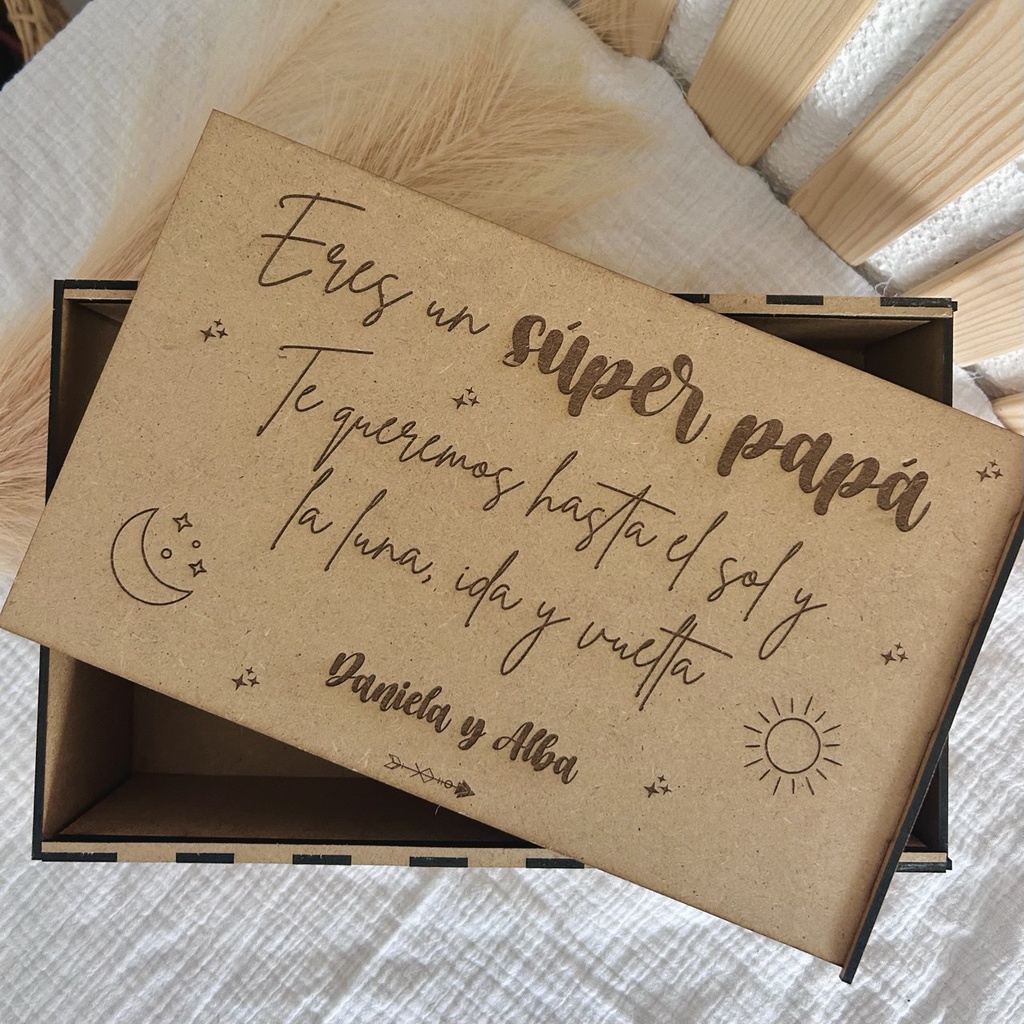 Eres un súper papá
Te queremos hasta el sol y
la luna, ida y vuelta
Daniela y Alba